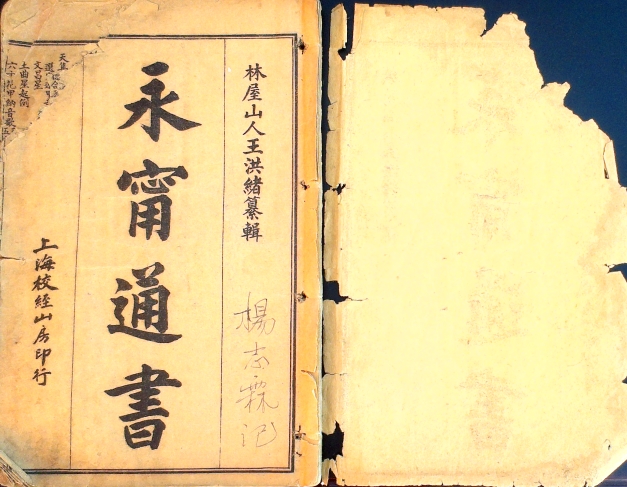 林屋山人王洪緒纂輯
楊志霖記
永甯通書
上海校經山房印行
文昌星
土曲星起例
六十花甲納音歌